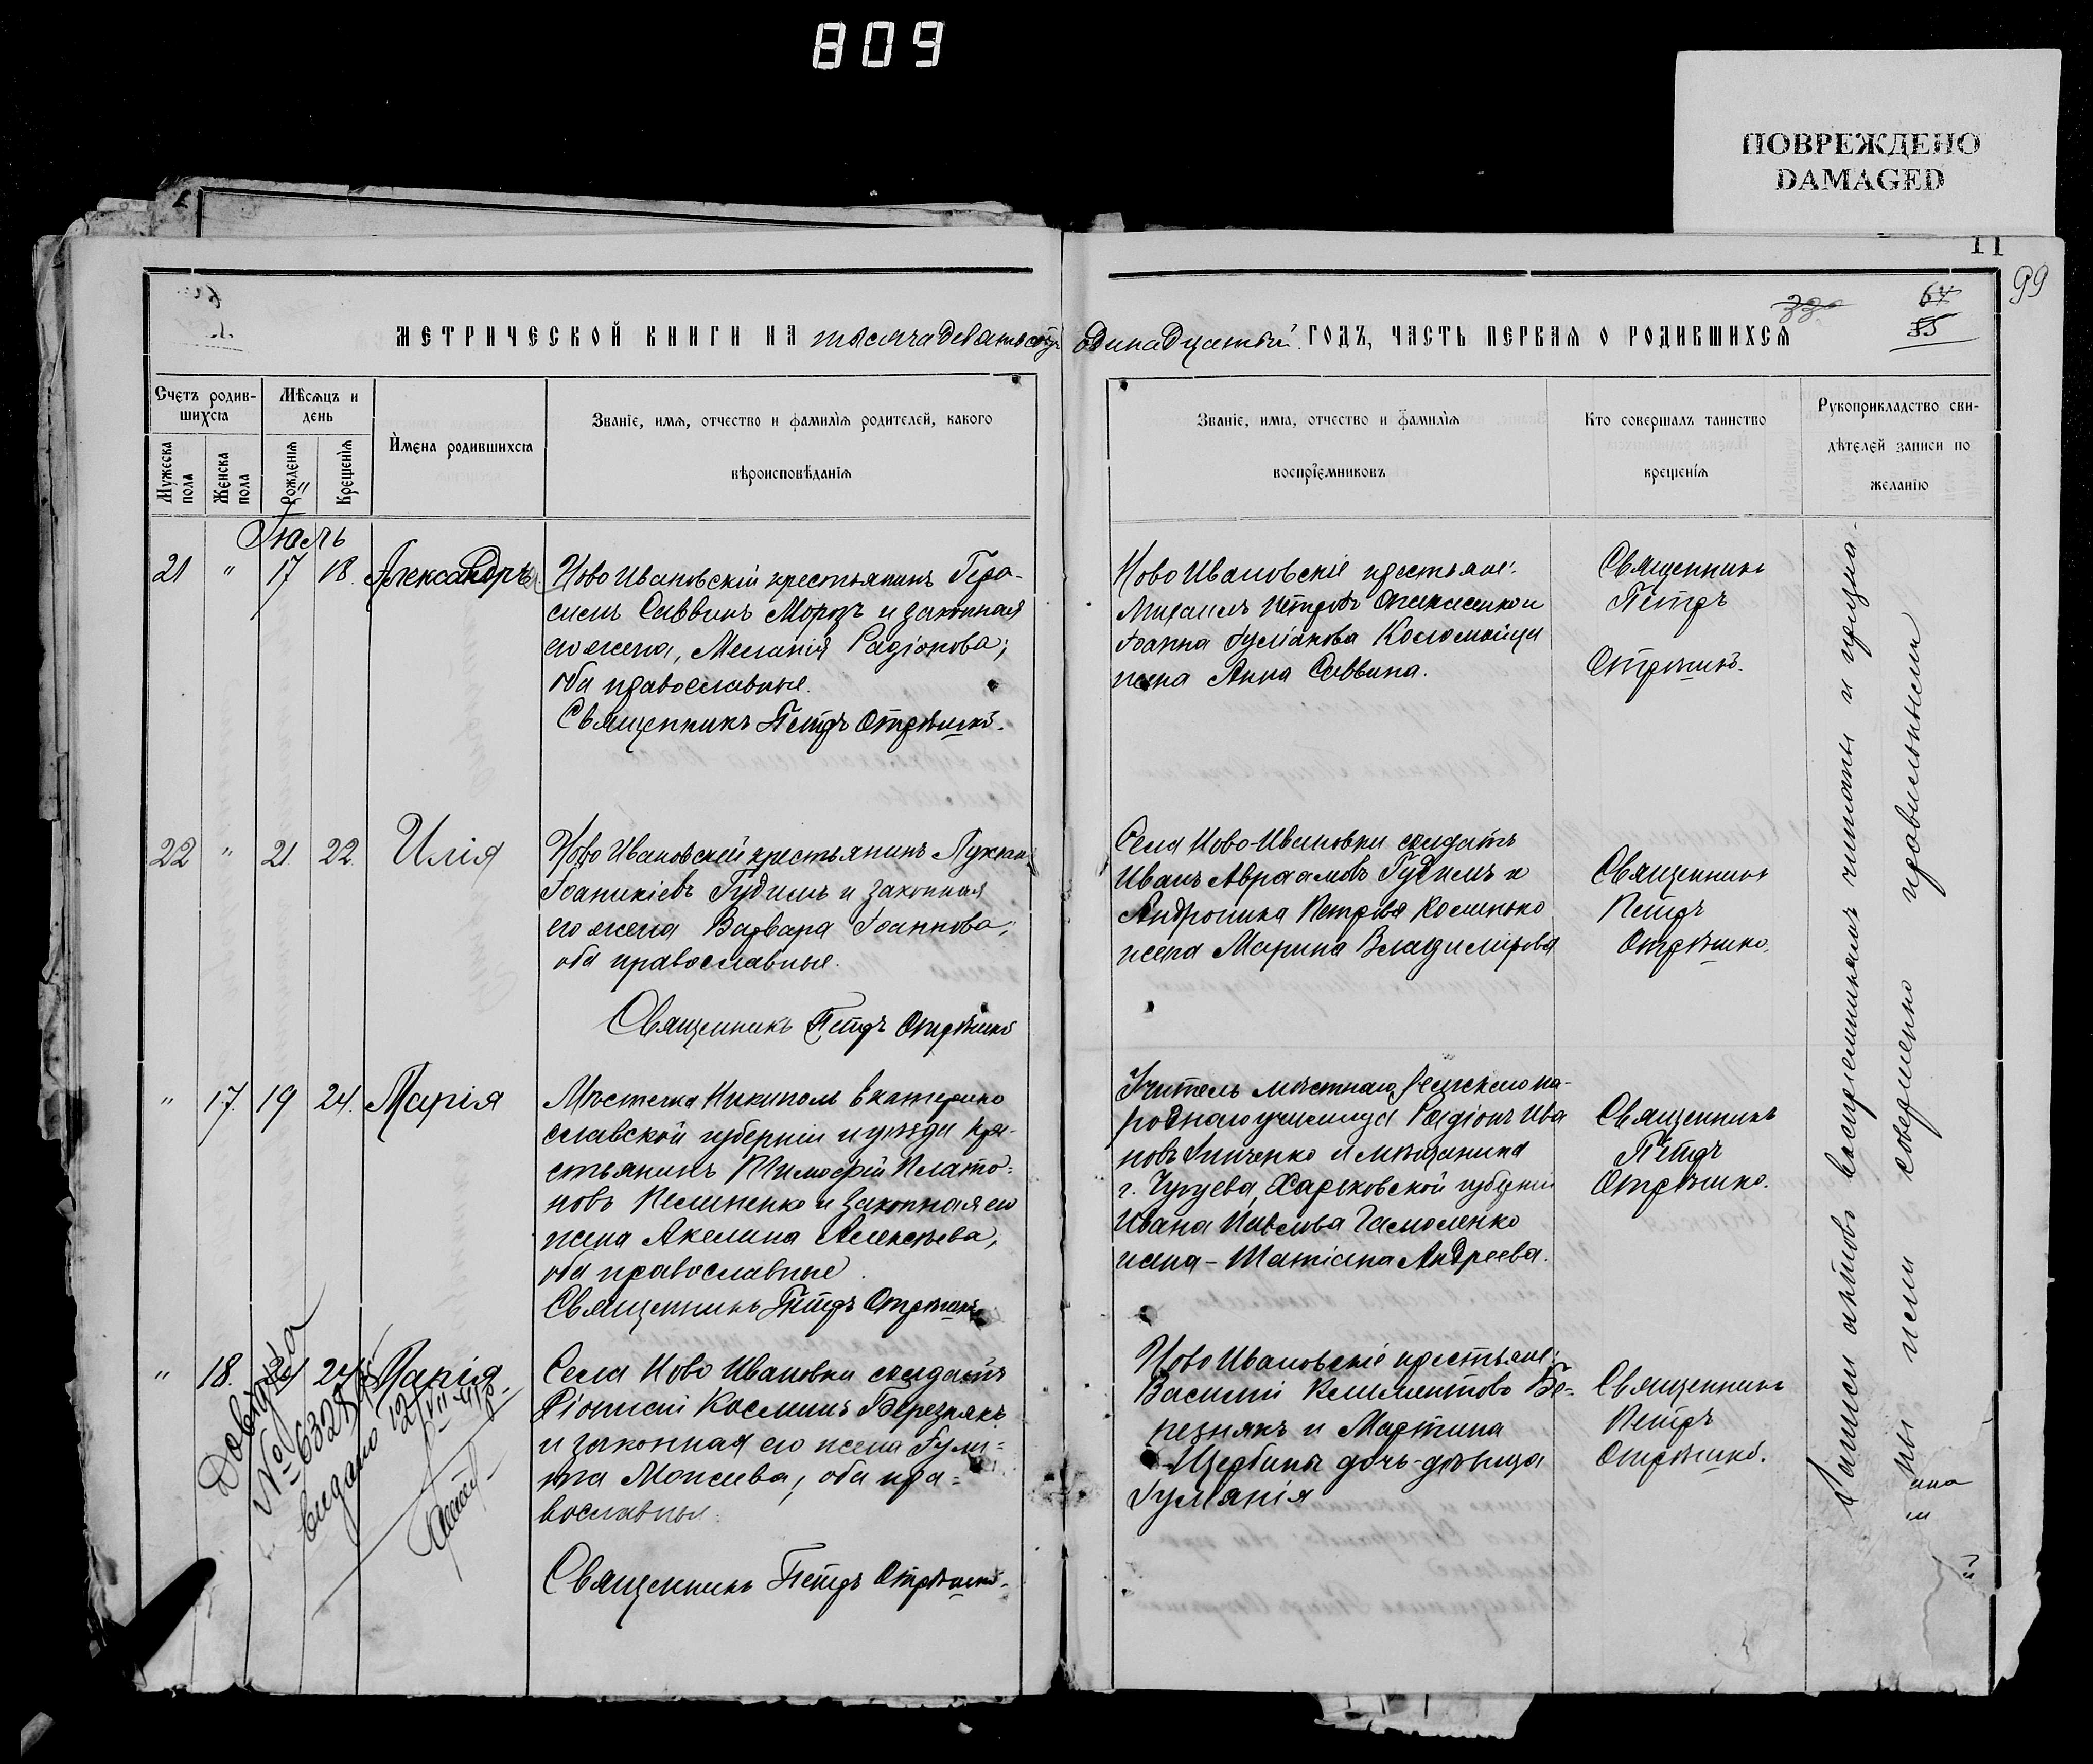 809
ПОВРЕЖДЕНО
DAMAGED
11
99
330
64
55
МЕТРИЧЕСКОЙ КНИГИ НА тысяча девятьсотъ одинадцатый ГОДЪ, ЧАСТЬ ПЕРВАЯ О РОДИВШИХСЯ
Счетъ родив-
шихся
Мужеска
пола
Женска
пола
Мѣсяцъ и
день
Рожденія
Крещенія
Имена родившихся
Званіе, имя, отчество и фамилія родителей, какого
вѣроисповѣданія
Званіе, имя, отчество и фамилія
воспріемниковъ
Кто совершалъ таинство
крещенія
Рукоприкладство сви-
дѣтелей записи по
желанію
Іюль
21 " 17 18. Александръ
Ново Ивановскій крестьянинъ Гера-
симъ Саввинъ Морозъ и законная
его жена, Меланія Радіонова;
оба православные.
Священникъ Петръ Отрѣшко.
Ново Ивановскіе крестьяне:
Михаилъ Петровъ и
Іоанна Косоможци
жена Анна Саввина.
Священникъ
Петръ
Отрѣшко.
22 " 21 22. Илія
Ново Ивановскій крестьянинъ Лукка
Іоаникіевъ Гудимъ и законная
его жена Варвара Іоаннова,
оба православные.
Священникъ Петръ Отрѣшко
Села Ново-Ивановки солдатъ
Иванъ Авраамовъ Гудимъ и
Андроника Петрова Косминко
жена Марина Владимірова
Священникъ
Петръ
Отрѣшко.
" 17. 19 24. Марія
Мѣстечка Никиполь Екатерино
славской губерніи и уѣзда кре-
стьянинъ Тимофій Плато-
новъ Пелипенко и законная его
жена Акелина Алексѣева,
оба православные.
Священникъ Петръ Отрѣшко
Учитель мѣстнаго Земскаго на-
роднаго училища Радіонъ Ива
новъ и мѣщанина
г. Чугуева, Харьковской губерніи
Ивана Павлова
жена - Татіана Андреева.
Священникъ
Петръ
Отрѣшко.
" 18. 21 24 Марія
Села Ново Ивановки солдатъ
Діонисій Косминъ Березнякъ
и законная его жена Іули-
та Моисеева, оба пра-
вославные.
Священникъ Петръ Отрѣшко.
Ново Ивановскіе крестьяне:
Василій Климентовъ Бе-
резнякъ и Мартина
Щербины дочь-дѣвица
Іуліанія
Священникъ
Петръ
Отрѣшко.
Довідка
№ 6328
видано 12/VII-41 р.
Записи актовъ воспріемникамъ читаны и призна-
ны ими совершенно правильными